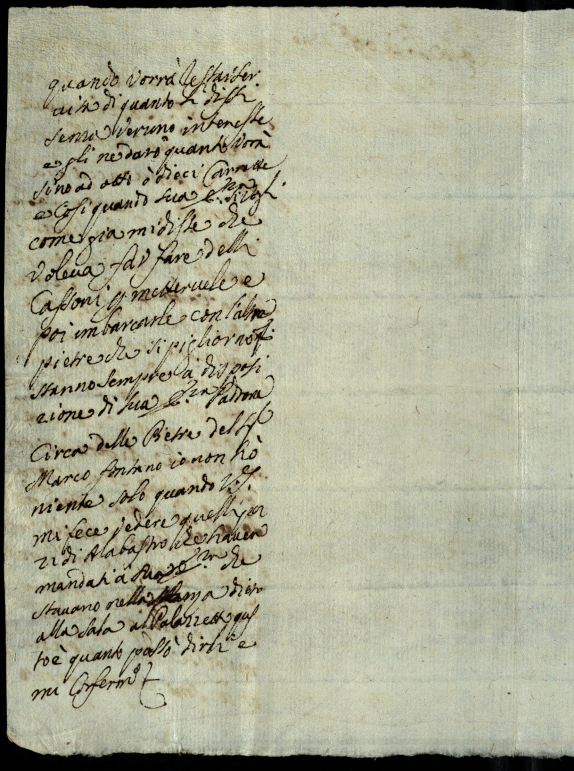 quando vorrà restar ser
vita di quanto li dissi
senza veruno interesse
e gli ne darò quanto vorrà
sino ad otto ò dieci Carrette
e Cosi quando sua
come già mi disse che
voleva far fare delli
Cassoni p mettervele e
poi imbarcarle con l'altre
pietre che si
stanno sempre à disposi
zione di sua Padrona
Circa delle Pietre del
Marco fontano io non hò
niente solo quando V.S.
mi fece vedere quelli pez
zi di Alabastro che haver
mandati à che
stavano nella stanza dietro
alla sala al Palazzetto ques
to è quanto posso dirli e
mi Confermo